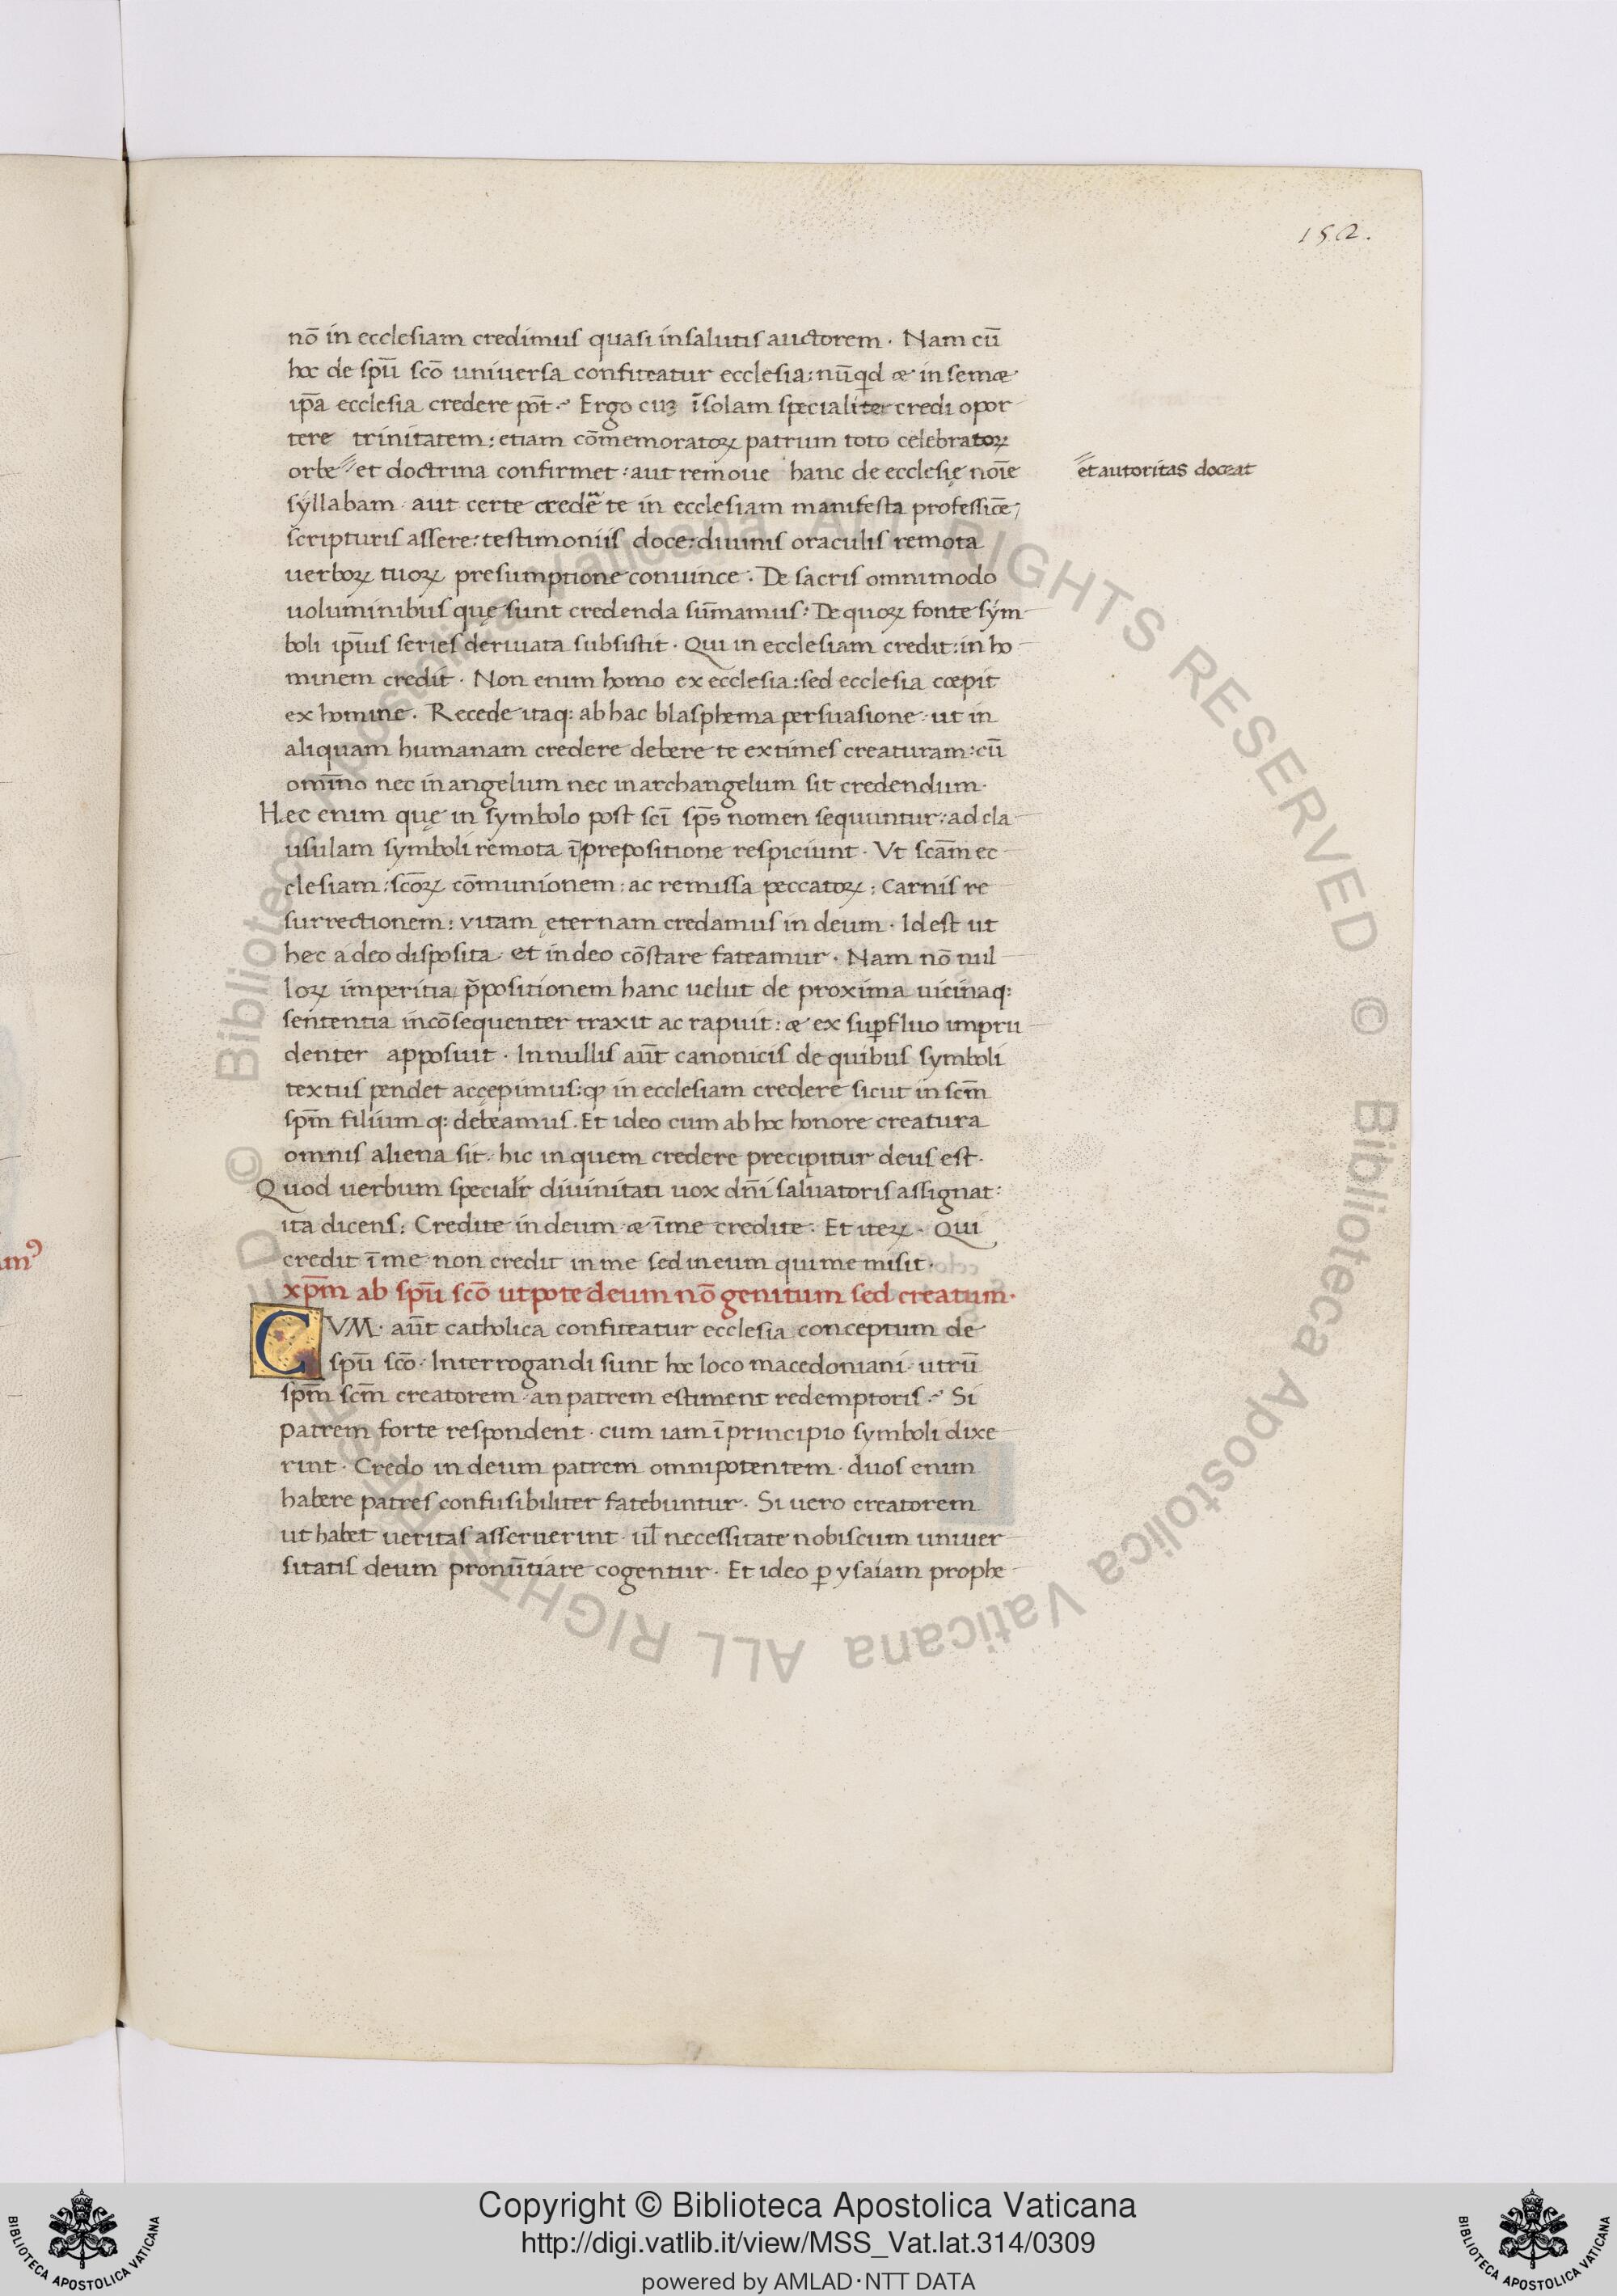 152.
nō in ecclesiam credimus quasi in salutis auctorem · Nam cū
hoc de spū scō uniuersa confiteatur ecclesia: nūqd æ in semæ
ip̄a ecclesia credere pōt · Ergo cuꝫ ī solam specialiter credi opor
tere trinitatem: etiam cōmemoratoꝝ patrum toto celebratoꝝ
orbe et doctrina confirmet: aut remoue hanc de ecclesię noīe
et autoritas doceat
syllabam · aut certe credēte te in ecclesiam manifesta professiōe;
scripturis assere: testimoniis doce: diuinis oraculis remota
uerboꝝ tuoꝝ presumptione conuince · De sacris omnimodo
uoluminibus quę sunt credenda sūmamus: De quoꝝ fonte sym
boli ipīus series deriuata subsistit · Qui in ecclesiam credit: in ho
minem credit · Non enim homo ex ecclesia: sed ecclesia cœpit
ex homine · Recede itaq: ab hac blasphema persuasione · ut in
aliquam humanam credere debere te extimes creaturam: cū
omīno nec in angelum nec in archangelum sit credendum ·
Hec enim quę in symbolo post scī sp̄s nomen sequuntur: ad cla
usulam symboli remota ī prepositione respiciunt · Vt scām ec
clesiam: scōꝝ cōmunionem: ac remissa peccatoꝝ: Carnis re
surrectionem: vitam ęternam credamus in deum · Id est ut
hec a deo disposita · et in deo cōstare fateamur · Nam nō nul
loꝝ imperitia p̄positionem hanc uelut de proxima uicinaq:
sententia incōsequenter traxit ac rapuit: æ ex suꝑfluo impru
denter apposuit · In nullis aūt canonicis de quibus symboli
textus pendet accepimus: ꝙ in ecclesiam credere sicut in scm̄
spm̄ filium q: debeamus · Et ideo cum ab hoc honore creatura
omnis aliena sit · hic in quem credere precipitur deus est ·
Quod uerbum specialr̄ diuinitati uox dn̄i saluatoris assignat:
ita dicens: Credite in deum æ ī me credite · Et iteꝝ · Qui
credit ī me non credit in me sed in eum qui me misit ·
xp̄m ab spū scō utpote deum nō genitum sed creatum ·
CVM · aūt catholica confiteatur ecclesia conceptum de
spū scō · Interrogandi sunt hoc loco macedoniani · utrū
spm̄ scm̄ creatorem · an patrem estiment redemptoris · Si
patrem forte respondent · cum iam ī principio symboli dixe
rint · Credo in deum patrem omnipotentem · duos enim
habere patres confusibiliter fatebuntur · Si uero creatorem
ut habet ueritas asseruerint · ul̄ necessitate nobiscum uniuer
sitatis deum pronūtiare cogentur · Et ideo ꝑ ysaiam prophe
Copyright © Biblioteca Apostolica Vaticana
http://digi.vatlib.it/view/MSS_Vat.lat.314/0309
powered by AMLAD·NTT DATA
BIBLIOTECA APOSTOLICA VATICANA
BIBLIOTECA APOSTOLICA VATICANA